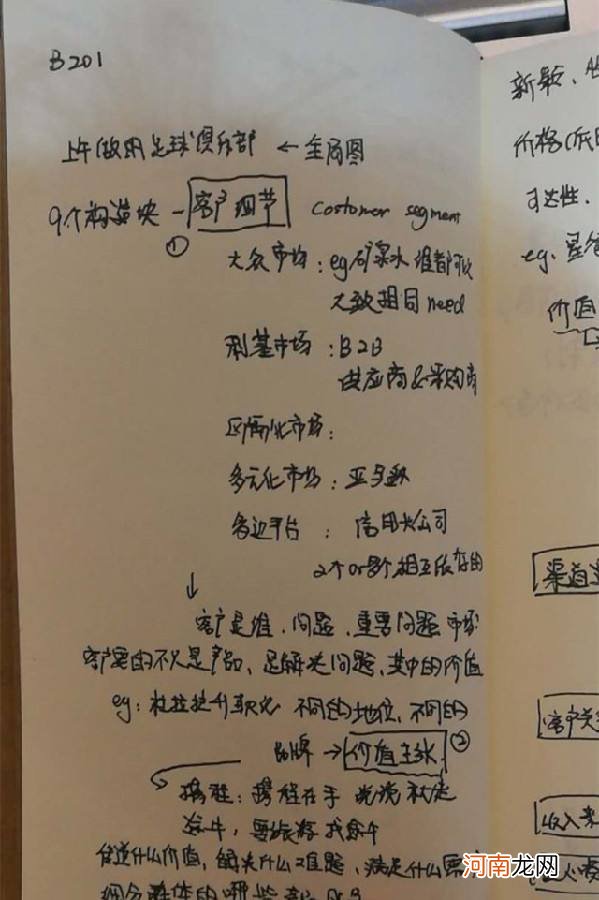 B201
上午做的足球俱乐部 ← 全局图
9个构造块 - 客户细节 costomer segment
①
大众市场:eg矿泉水 谁都可以
大致相同need
利基市场:B2B
供应商&采购商
区隔化市场:
多元化市场:亚马逊
多边平台:信用卡公司
2个or多个相互依存的
↓
客户是谁、问题、重要问题 市场
客户要的不只是产品、是解决问题、其中的价值
eg:杜拉拉升职记 不同的地位、不同的
品牌 → 价值主张 ②
携程:携程在手 说走就走
途牛,要旅游找途牛
创造什么价值,解决什么难题,满足什么需
细分群体的哪些
新颖、
价格(低
可达性、
eg.
价值
渠道
客户关
收入来
河南龙网